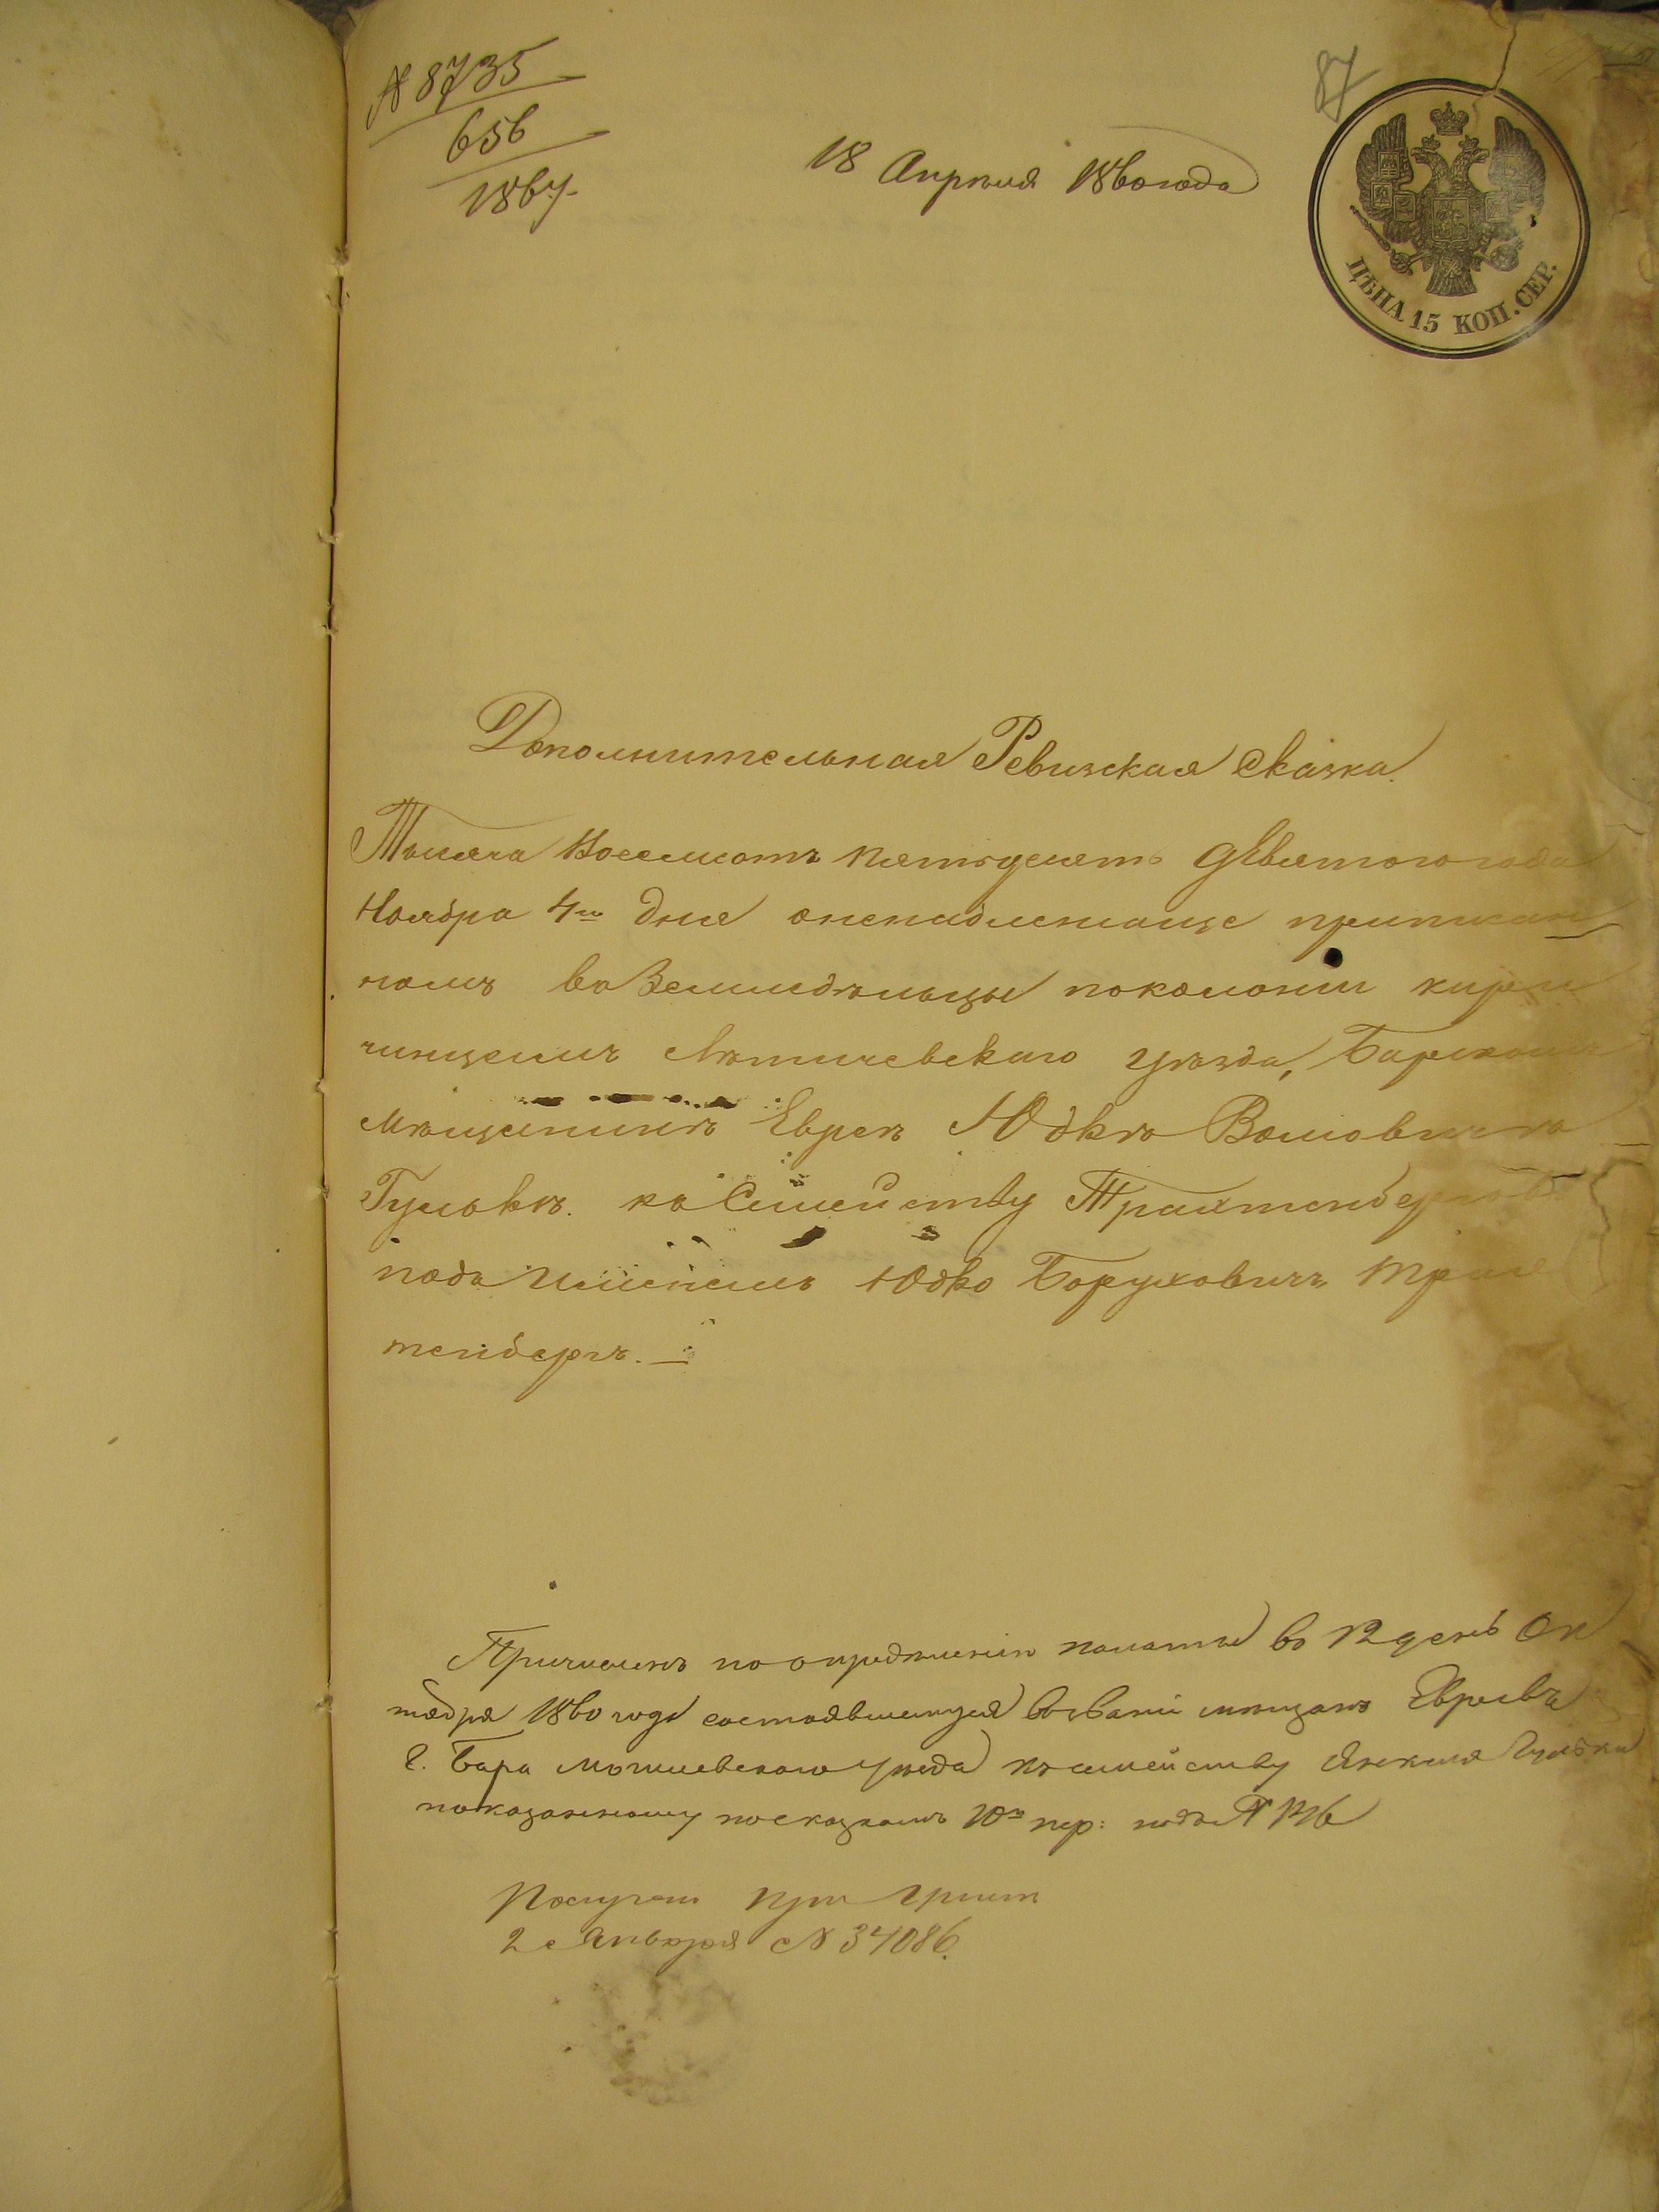 № 8735
656
1867
87
18 Апрѣля 1860 года
ЦѢНА 15 КОП. СЕР.
Дополнительная Ревизская Сказка.
Тысяча Восемсотъ пятьдесятъ девятого года
Ноября 4го дня о неподлежаще приписан
номъ въ Земледѣльцы по колоніи кири
чинцемъ Лѣтичевскаго уѣзда, Барскомъ
мѣщанинѣ Евреѣ Юдкѣ Волковичѣ
Гулькѣ къ Семейству Трахтенберговъ
подъ именемъ Юдко Боруховичъ Трах
тенбергъ. —
Причисленъ по опредѣленію палаты въ 12 день Ок
тября 1860 года состоявшемуся въ званіи мѣщанъ Евреевъ
г. Бара Могилевского уѣзда къ семейству Янкеля Гулька
показанному по сказкамъ 10й пер: подъ №
при
2 Января № 34086.